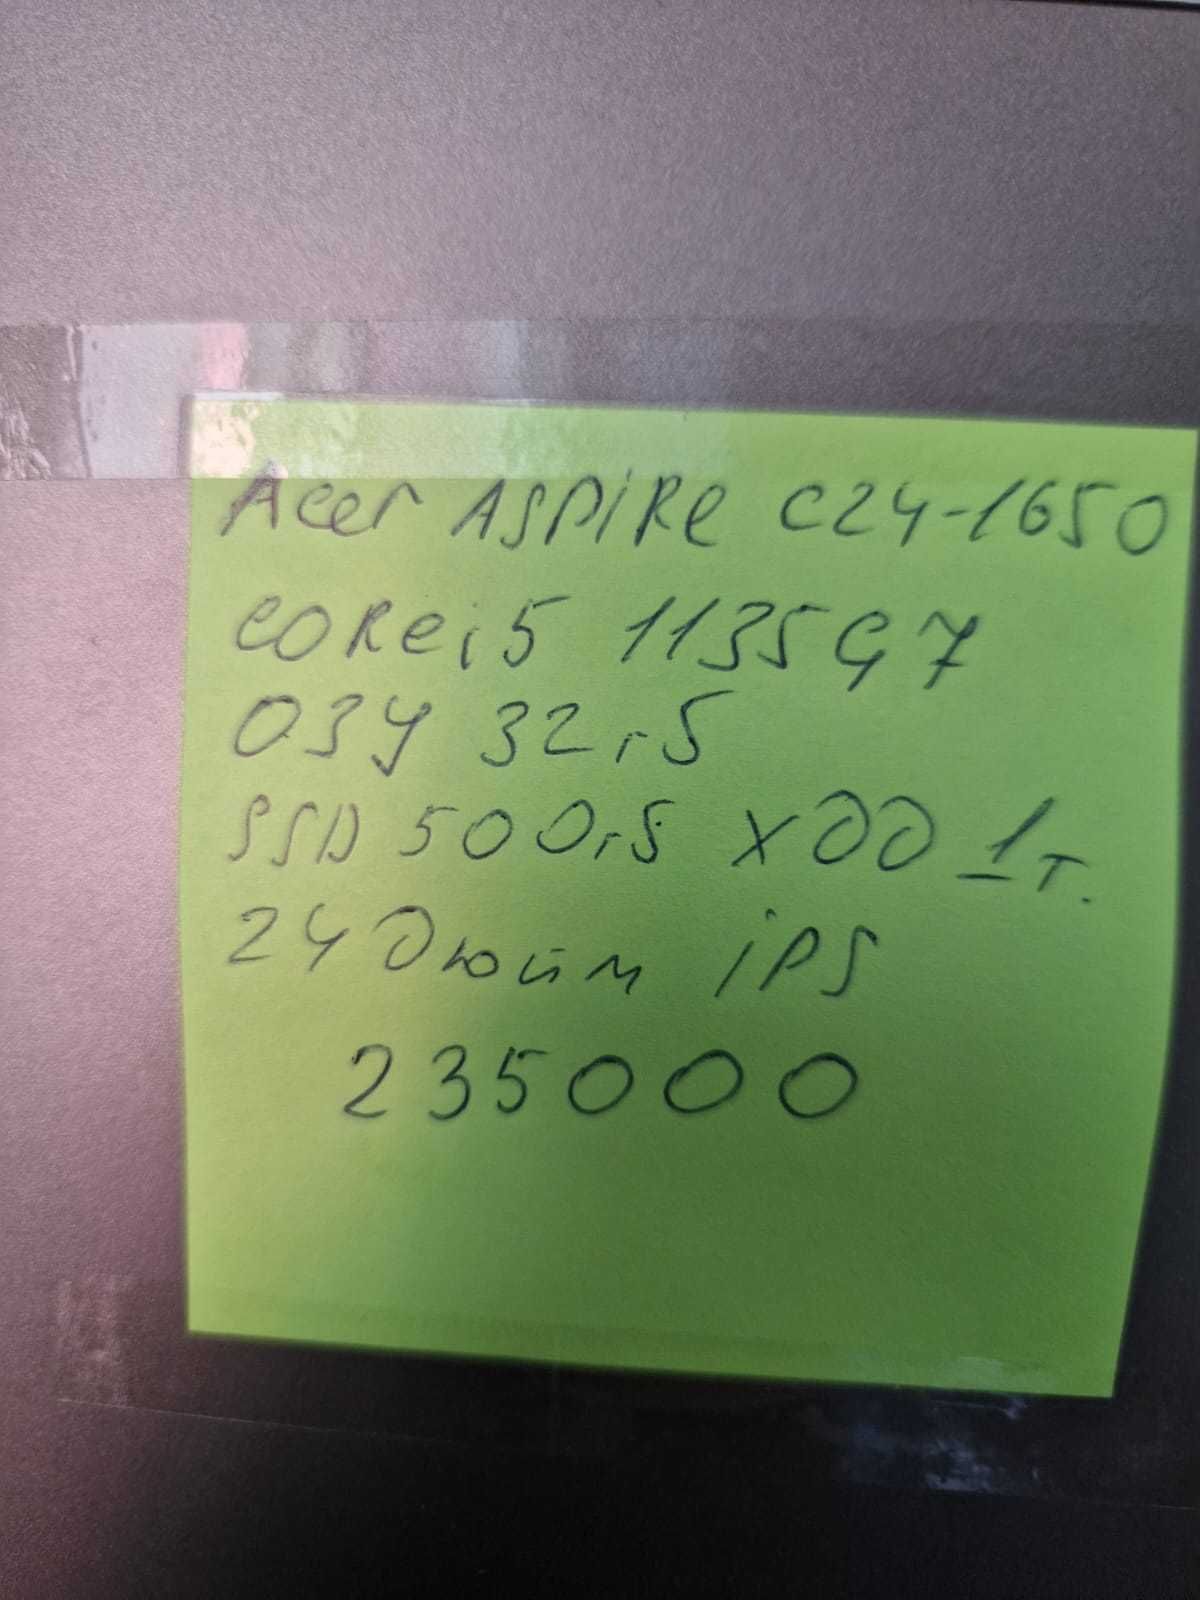 Acer ASPIRE C24-1650
CORE i5 1135G7
ОЗУ 32гб
SSD 500гб ХДД 1т.
24 Дюйм iPS
235000